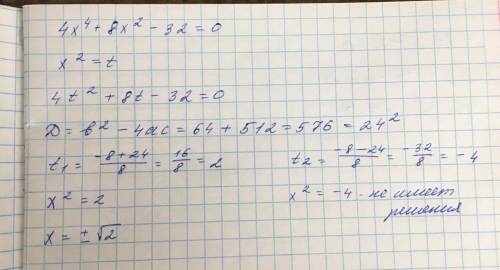 4x⁴ + 8x² - 32 = 0
x² = t
4t² + 8t - 32 = 0
D = b² - 4ac = 64 + 512 = 576 = 24²
t₁ = (-8+24)/8 = 16/8 = 2
t₂ = (-8-24)/8 = -32/8 = -4
x² = 2
x² = -4 - не имеет
решения
x = ±√2